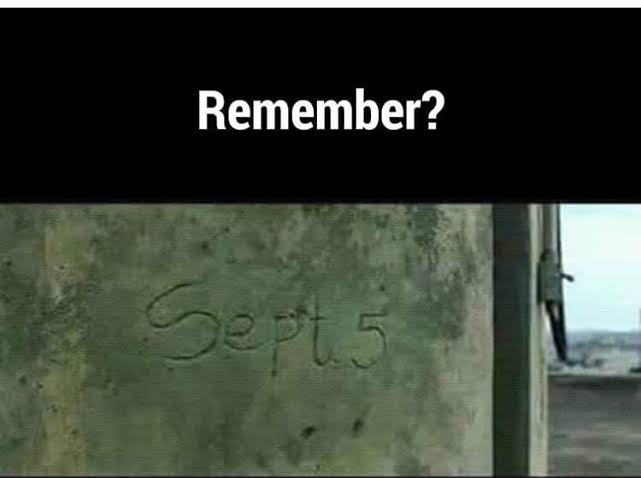 Remember?
Sept. 5